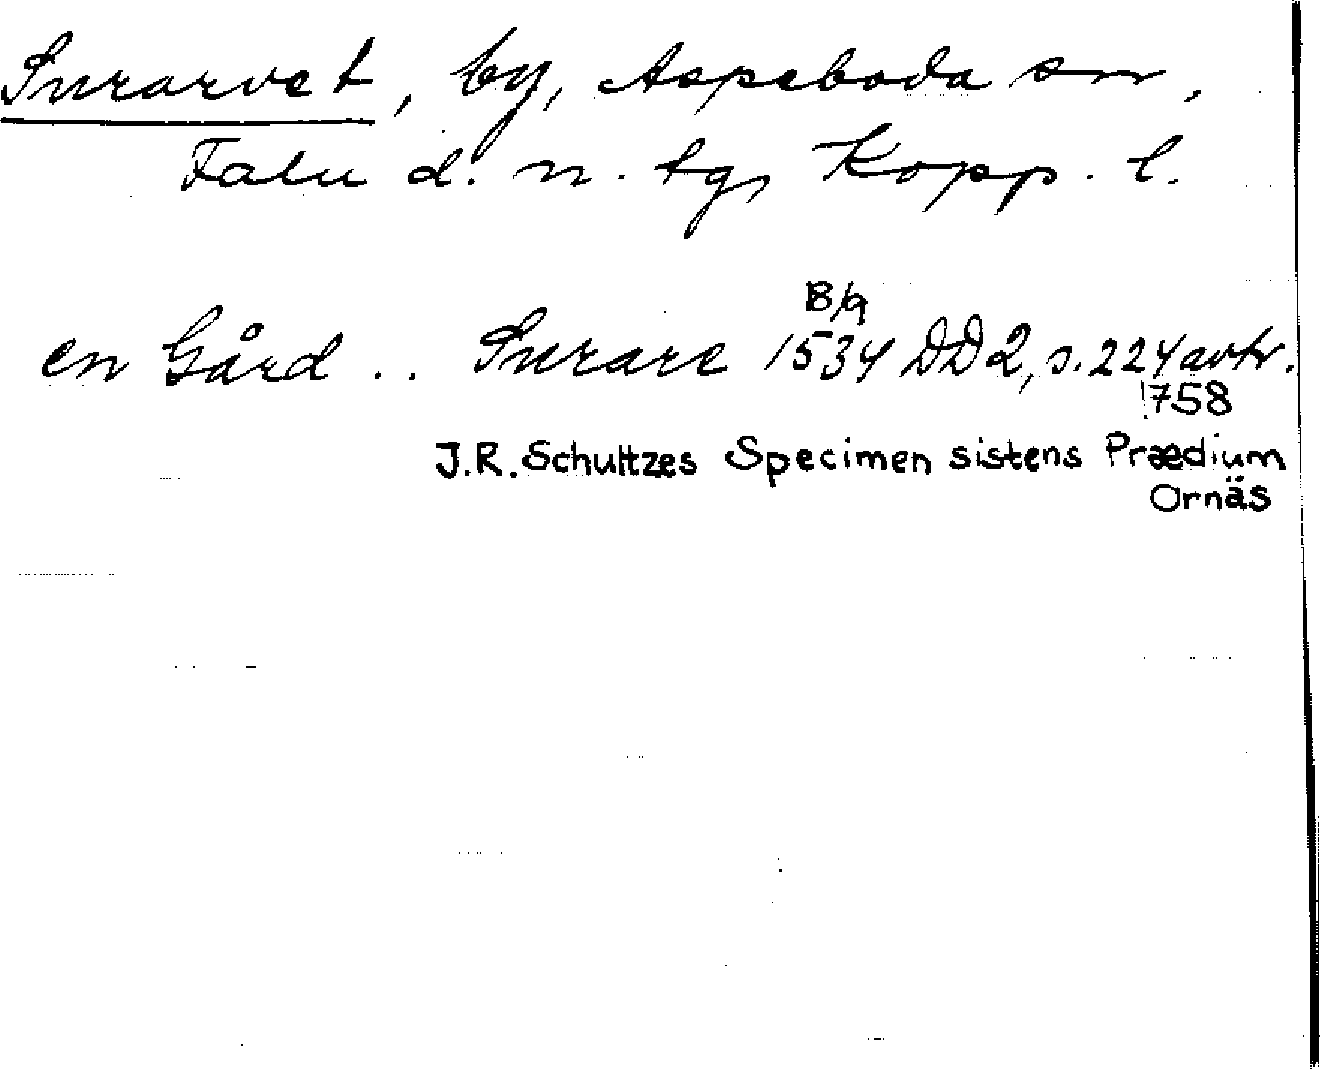 Snrarvet, by, Aspeboda sn,
Falu d. n. tg, Kopp. l.
en Gård .. Snrare 18/9 1534 DD2, s. 224 avtr.
1758
J.R. Schultzes Specimen sistens Prædium
Ornäs